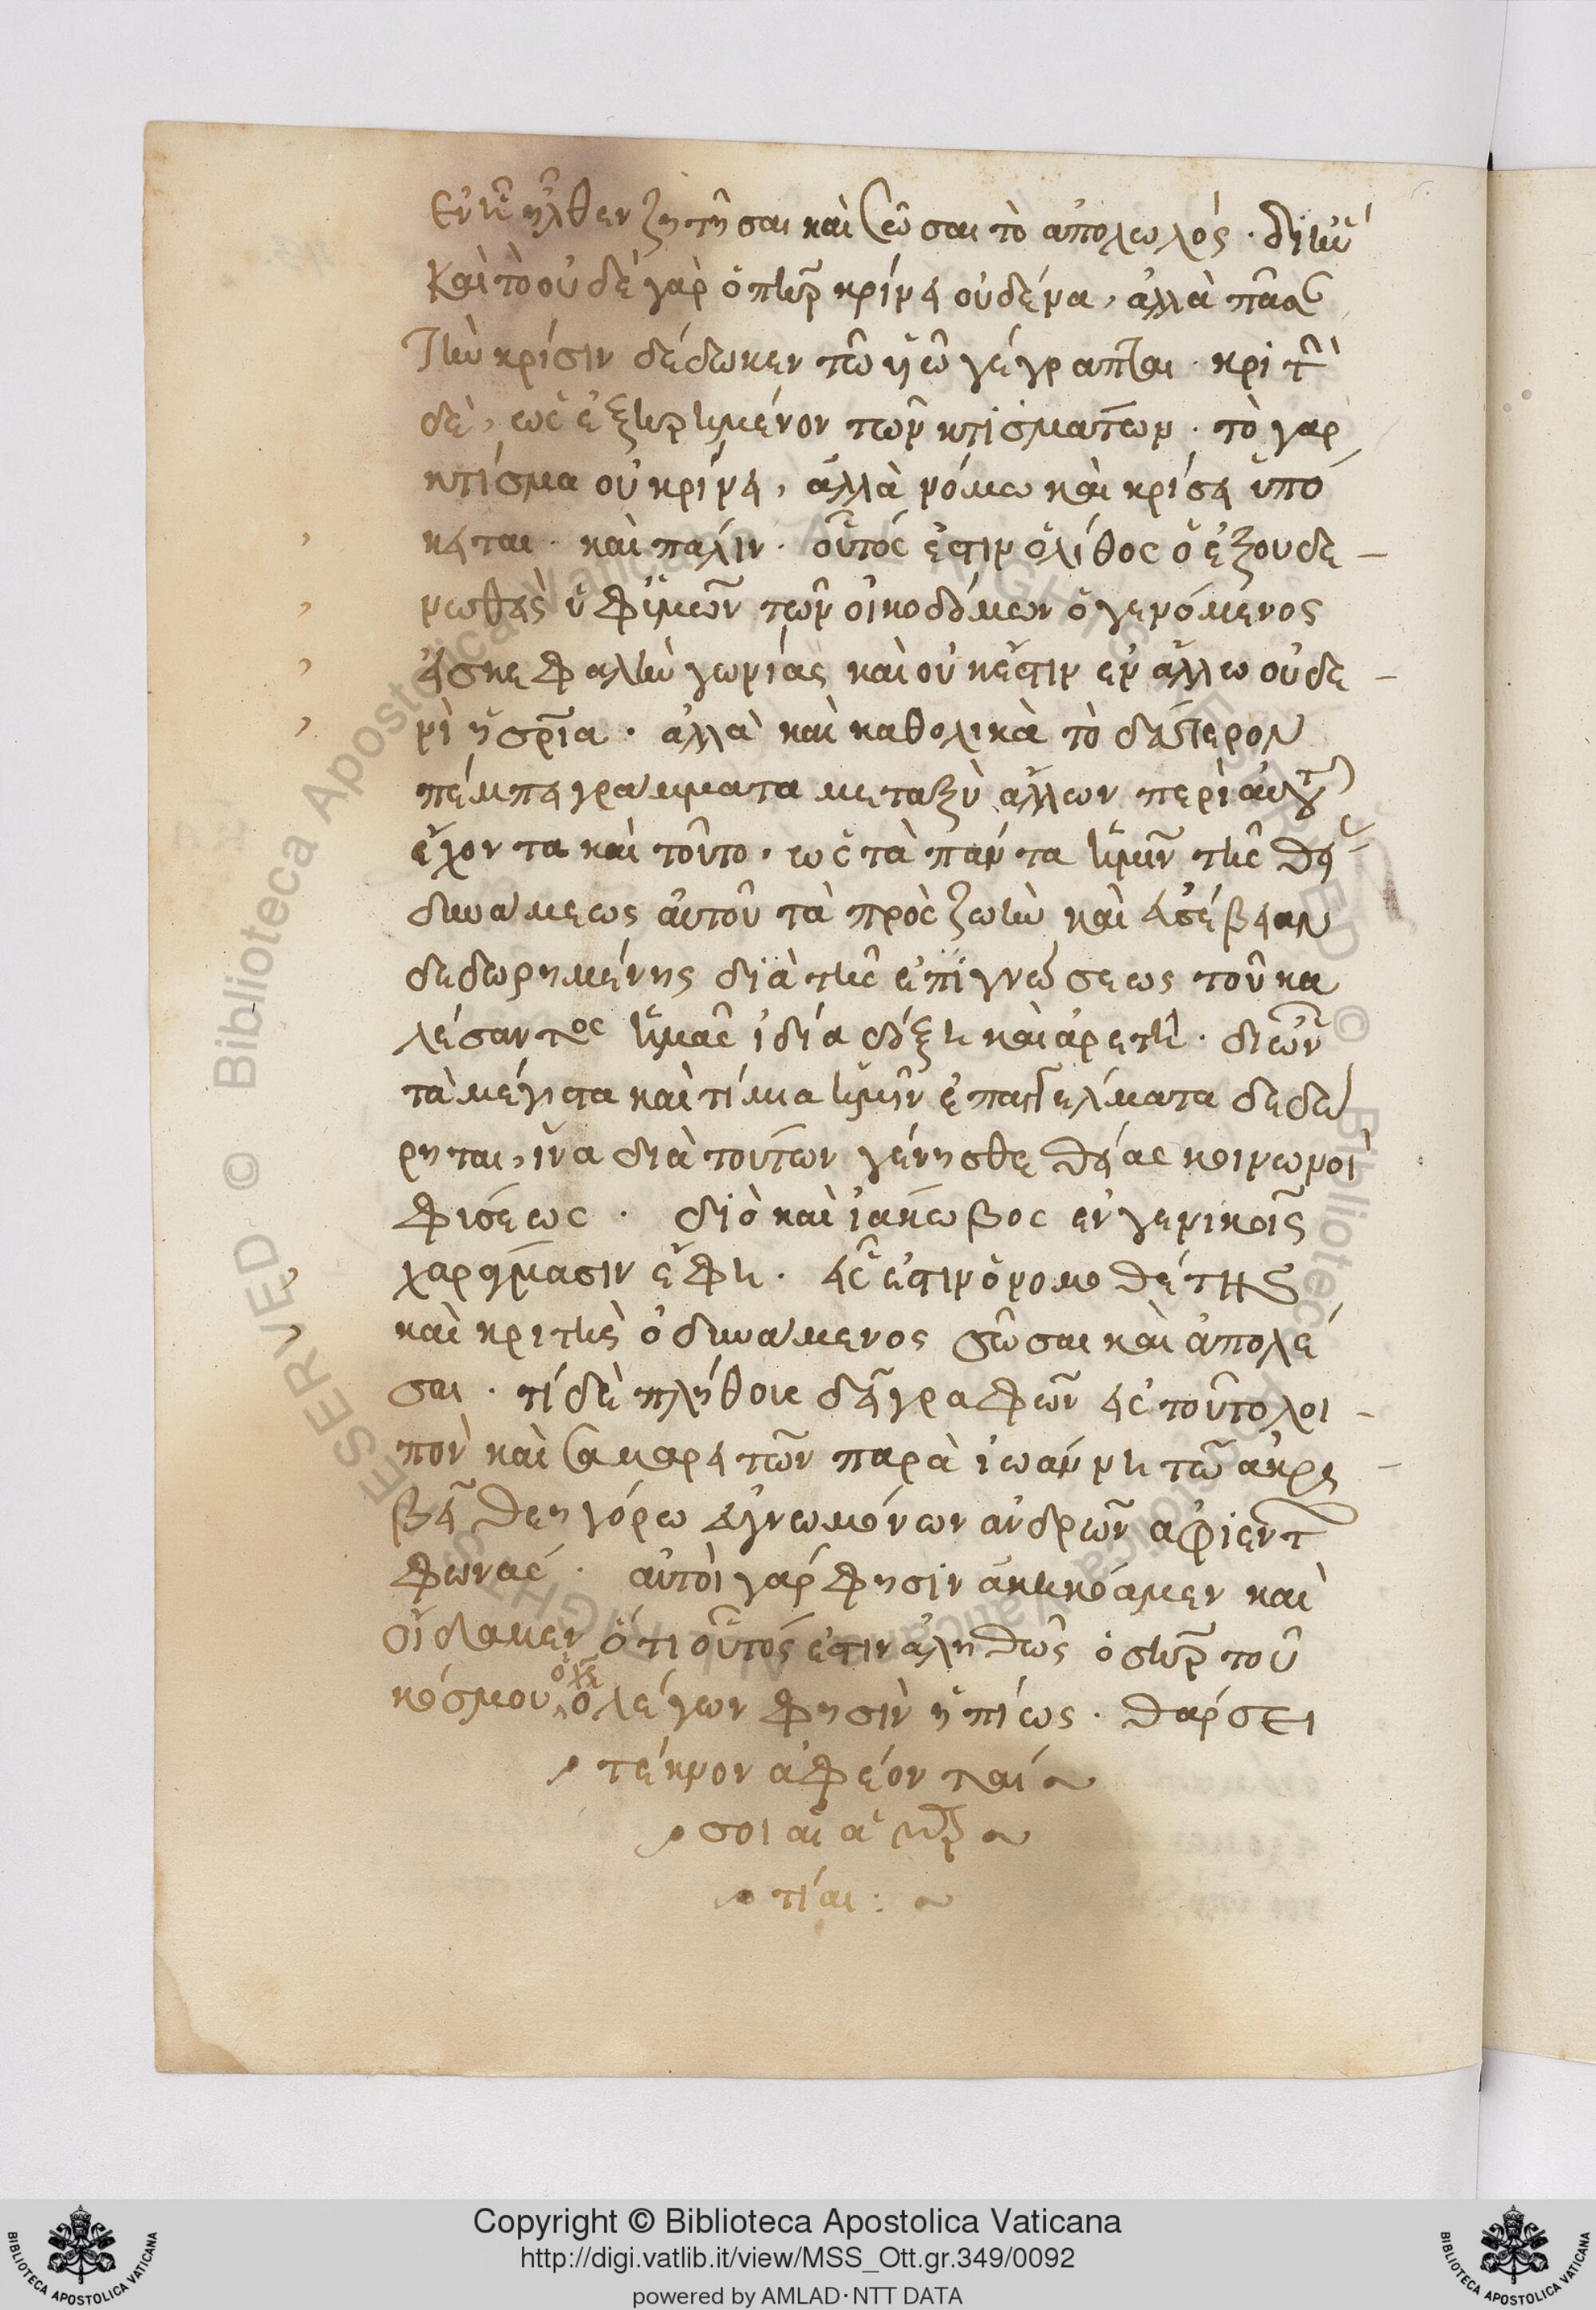 ἦλθεν ζητῆσαι καὶ σῶσαι τὸ ἀπολωλός·
καὶ τὸ οὐδὲ γὰρ ὁ πηρ κρίνει οὐδένα, ἀλλὰ πᾶσαν
τὴν κρίσιν δέδωκεν τῶ υἱῶ γέγραπται· κριτὴν
δὲ, ὡς ἐξηρημένον τῶν κτισμάτων· τὸ γαρ
κτίσμα οὐ κρίνει, ἀλλὰ νόμω καὶ κρίσει ὑπό
κειται· καὶ παλιν· οὗτός ἐστιν ὁ λίθος ὁ ἐξουδε
νωθεὶς ὑφ' ὑμῶν τῶν οἰκοδόμων ὁ γενόμενος
εἰς κεφαλὴν γωνίας καὶ οὐκ ἔστιν ἐν ἄλλω οὐδε
νὶ ἡ σρια· ἀλλὰ καὶ καθολικὰ τὸ δεύτερον
πέμπει γράμματα μεταξὺ ἄλλων περὶ αὐτοῦ
ἔχοντα καὶ τοῦτο, ὡς τὰ πάντα ἡμῖν τῆς θείας
δυνάμεως αὐτοῦ τὰ πρὸς ζωὴν καὶ εὐσέβειαν
δεδωρημένης διὰ τῆς ἐπιγνώσεως τοῦ κα
λέσαντος ἡμᾶς ἰδία δόξη καὶ ἀρετῆ· δι' ὧν
τὰ μέγιστα καὶ τίμια ἡμῖν ἐπαγγέλματα δεδώ
ρηται, ἵνα διὰ τούτων γένησθε θείας κοινωνοὶ
φύσεως· διὸ καὶ ἰάκωβος ἐν γενικοῖς
χαράγμασιν ἔφη· εἷς ἐστιν ὁ νομοθέτης
καὶ κριτὴς ὁ δυνάμενος σῶσαι καὶ ἀπολέ
σαι· τί δὲ πλήθοιε δεῖ γραφῶν εἰς τοῦτο λοι
πὸν καὶ σαμαρειτῶν παρὰ ἰωάννη τῶ ἀκρι
βεῖ θεηγόρω εὐγνωμόνων ἀνδρῶν ἀφιέντων
φωνάς· αὐτοὶ γάρ φησιν ἀκηκόαμεν καὶ
οἴδαμεν ὅτι οὗτός ἐστιν ἀληθῶς ὁ σηρ τοῦ
κόσμου, ὁ χς ὁ λέγων φησὶν ἠπίως· θάρσει
τέκνον ἀφέονταί
σοι αἱ ἁμαρ
τίαι:
Copyright © Biblioteca Apostolica Vaticana
http://digi.vatlib.it/view/MSS_Ott.gr.349/0092
powered by AMLAD·NTT DATA
BIBLIOTECA APOSTOLICA VATICANA
BIBLIOTECA APOSTOLICA VATICANA